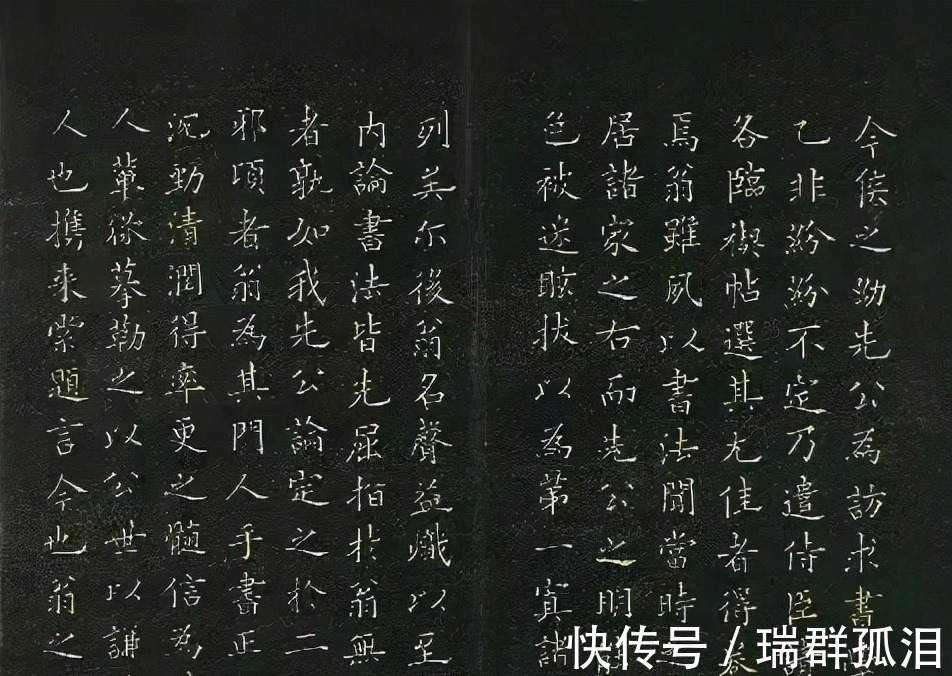 今侯之幼先公為訪求書
乙非紛紛不定乃遣侍臣
各臨禊帖選其尤佳者得
焉翁雖夙以書法聞當時
居諸家之右而先公之明
色被迷眩扶以為第一寘諸
列美尔後翁名聲益熾以至
内論書法皆先屈指於翁無
者孰如我先公論定之於二
邪頃者翁為其門人手書正
沉勁清潤得率更之髓信為
人葦係摹勒之以公世以謝
人也携来索題言今也翁之
快传号 / 瑞群孤泪